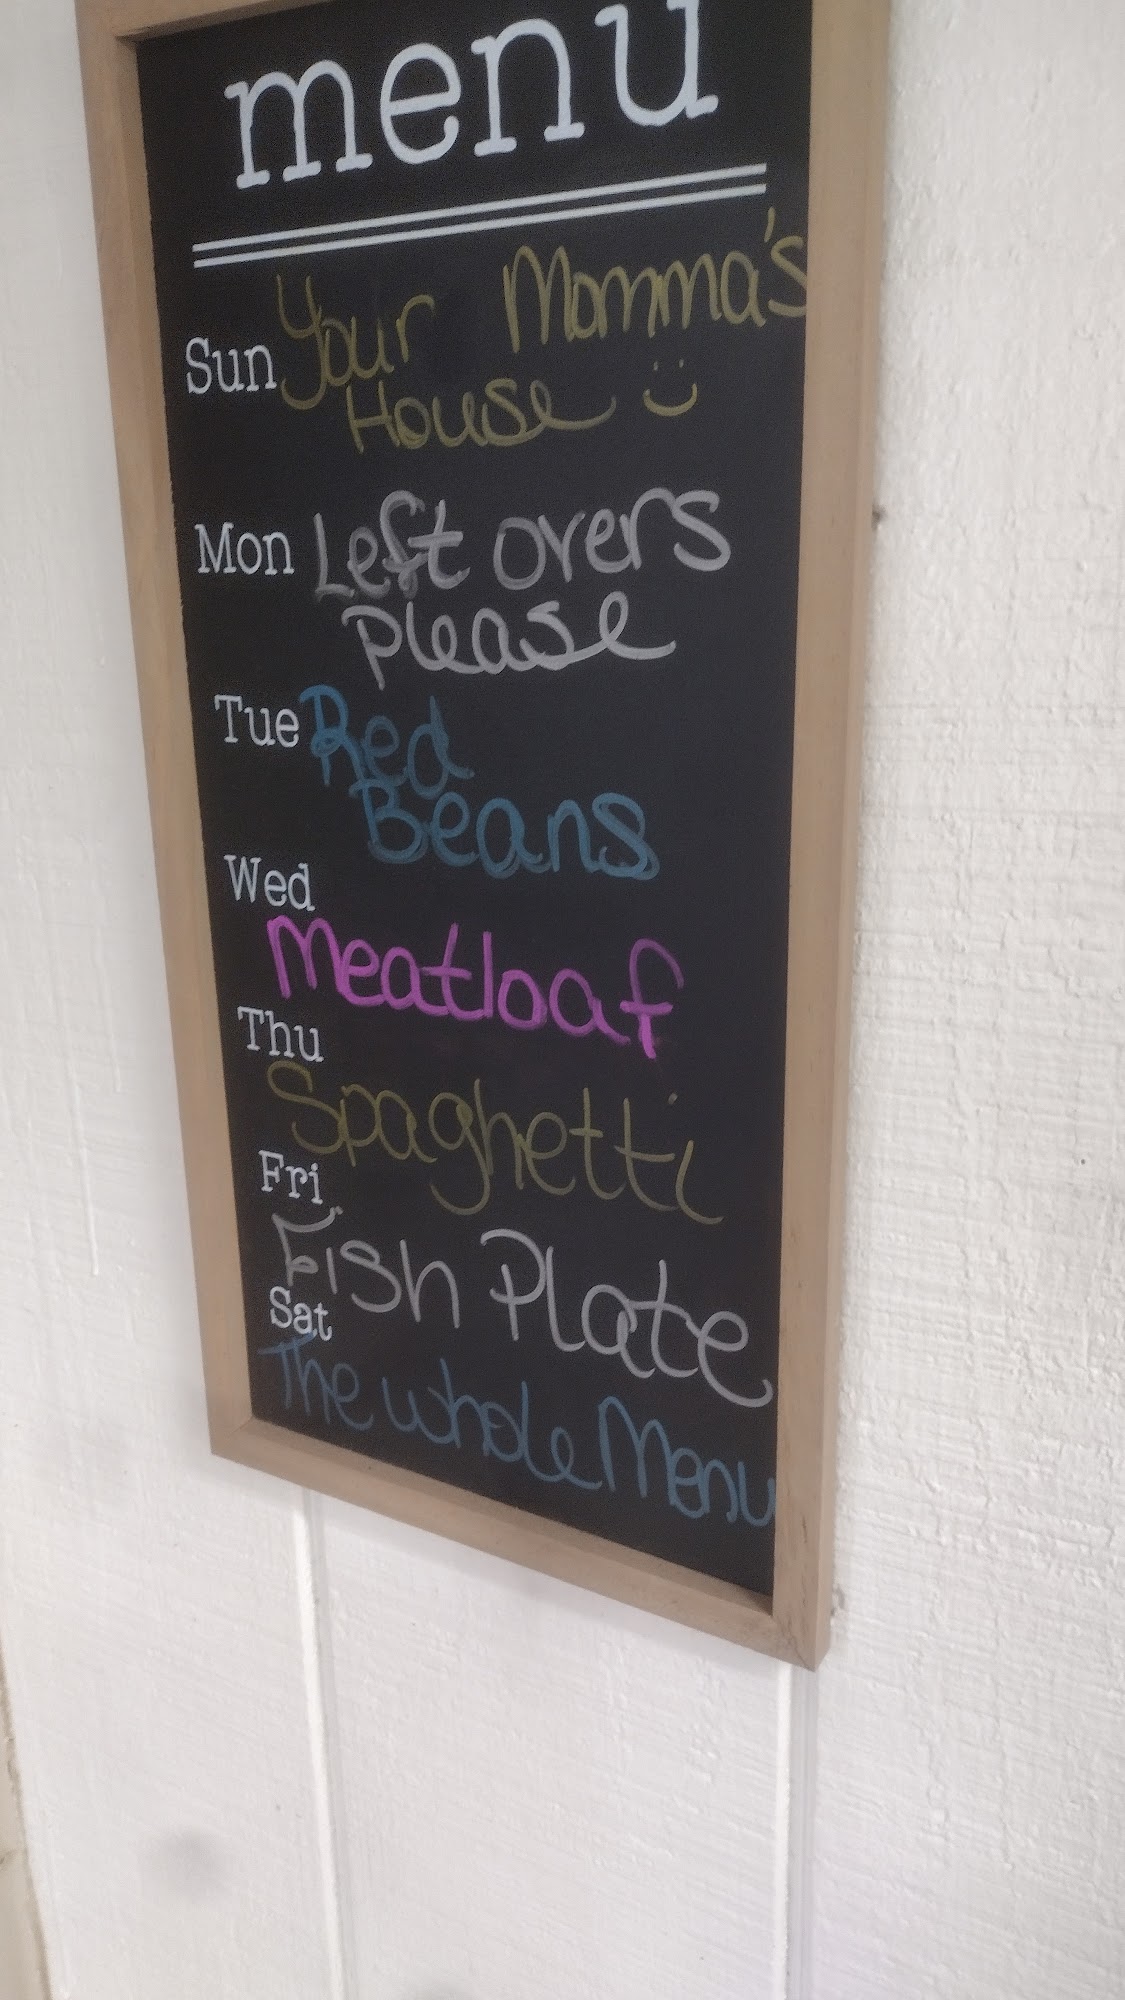 menu
Sun Your Momma's
House
Mon Left overs
please
Tue Red
Beans
Wed
Meatloaf
Thu
Spaghetti
Fri
Fish Plate
Sat
The whole Menu